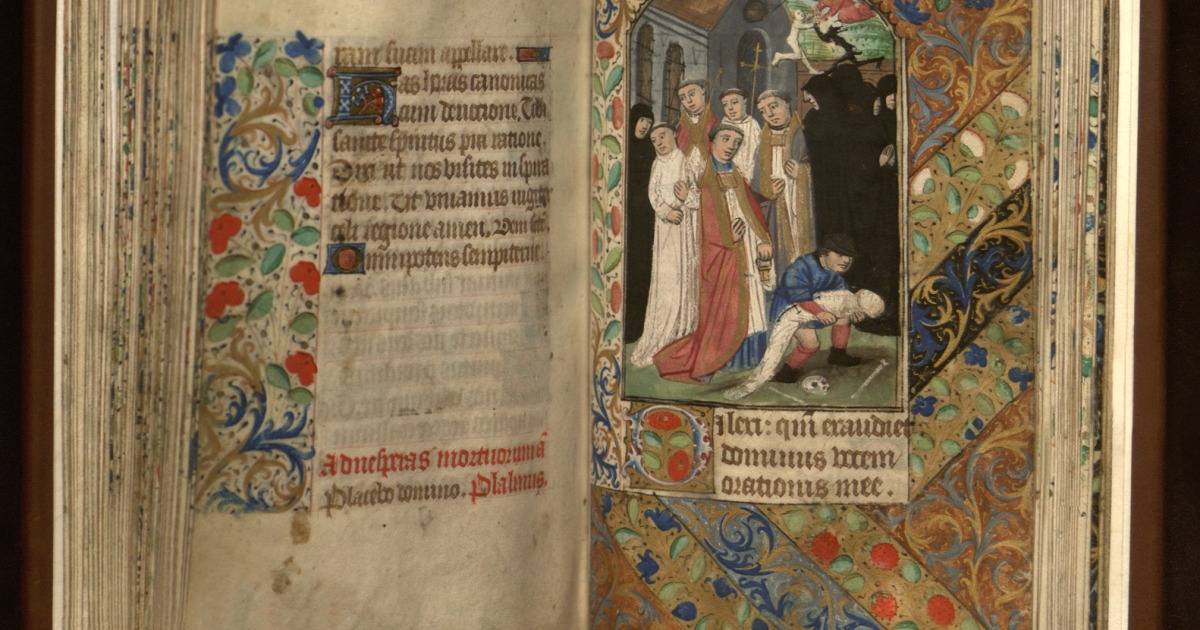 rant suum appellare.
Has horas canonicas
cum deuocione. Tibi
sancte spiritus pia ratione.
Dixi ut nos visites inspira
tione. Et viuamus iugiter
celi regione amen. Veni sce.
Omnipotens sempiterne.
Ad vesperas mortuorum añ
Placebo domino. Psalmus.
Dilexi: qm̄ exaudiet
dominus vocem
orationis mee.